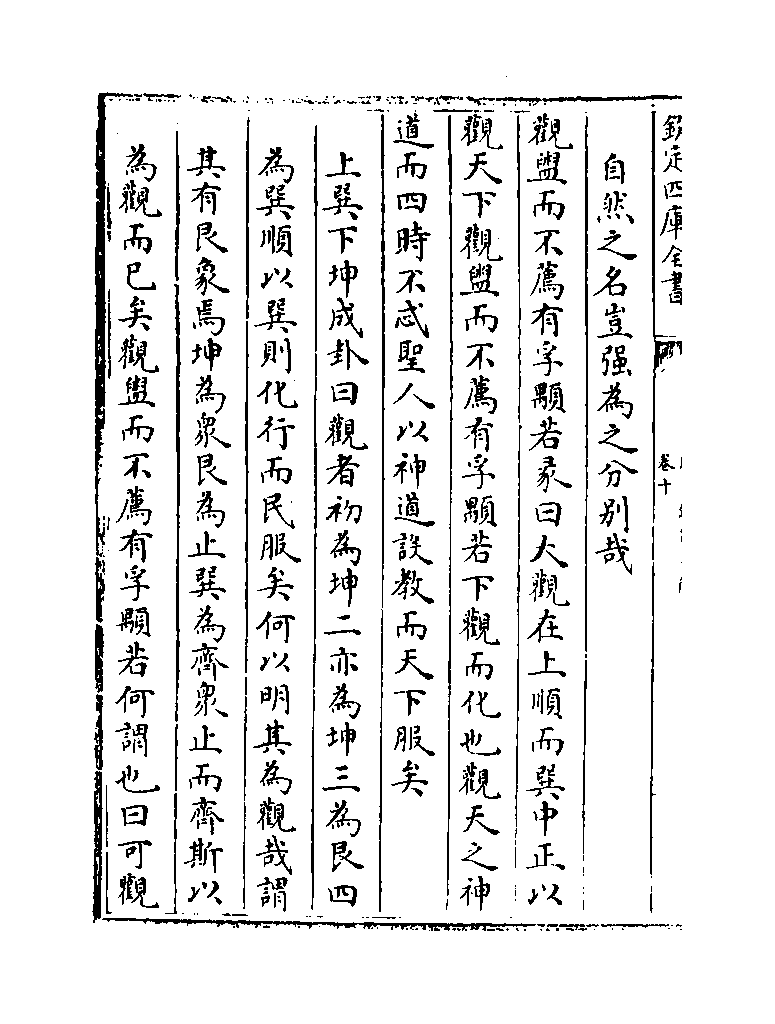 欽定四庫全書
卷十
自然之名豈强為之分别哉
觀盥而不薦有孚顒若彖曰大觀在上順而巽中正以
觀天下觀盥而不薦有孚顒若下觀而化也觀天之神
道而四時不忒聖人以神道設教而天下服矣
上巽下坤成卦曰觀者初為坤二亦為坤三為艮四
為巽順以巽則化行而民服矣何以明其為觀哉謂
其有艮象焉坤為衆艮為止巽為齊衆止而齊斯以
為觀而已矣觀盥而不薦有孚顒若何謂也曰可觀